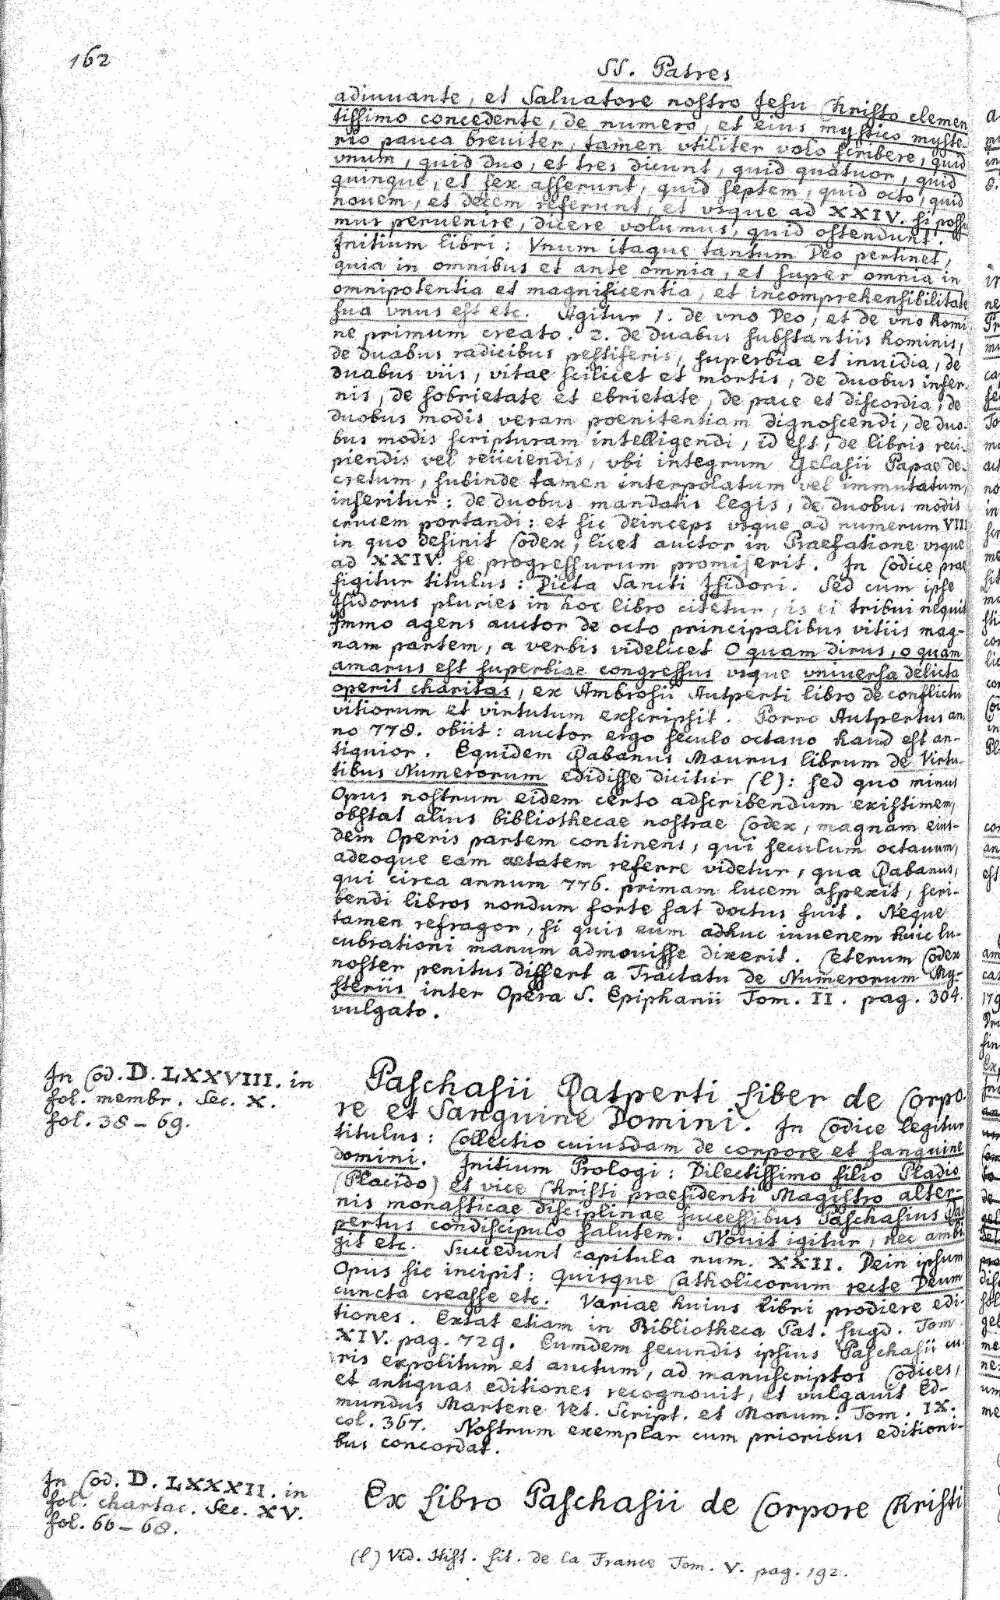 162
SS. Patres
adiuuante, et Saluatore nostro Jesu Christo clemen
tissimo concedente, de numero, et eius mystico myste-
rio pauca breuiter, tamen vtiliter volo scribere, quid
vnum, quid duo, et tres dicunt, quid quatuor, quid
quinque, et sex asserunt, quid septem, quid octo, quid
nouem, et decem referunt, et vsque ad XXIV. si possu
mus peruenire, dicere volumus, quid ostendunt.
Initium libri: Vnum itaque tantum Deo pertinet,
quia in omnibus et ante omnia, et super omnia in
omnipotentia et magnificentia, et incomprehensibilitate
sua vnus est etc. Agitur 1. de vno Deo, et de vno homi
ne primum creato. 2. de duabus substantiis hominis,
de duabus radicibus pestiferis, superbia et inuidia, de
duabus viis, vitae scilicet et mortis, de duobus infer-
nis, de sobrietate et ebrietate, de pace et discordia, de
duobus modis veram poenitentiam dignoscendi, de duo-
bus modis scripturam intelligendi, id est, de libris reci-
piendis vel reiiciendis, vbi integrum Gelasii Papae de-
cretum, subinde tamen interpolatum vel immutatum,
inseritur: de duobus mandatis legis, de duobus modis
crucem portandi: et sic deinceps vsque ad numerum VIII
in quo definit Codex, licet auctor in Praefatione vsque
ad XXIV. se progressurum promiserit. In Codice prae
figitur titulus: Dicta Sancti Isidori. Sed cum ipse
Isidorus pluries in hoc libro citetur, is ei tribui nequit
Immo agens auctor de octo principalibus vitiis mag-
nam partem, a verbis videlicet O quam dirus, o quam
amarus est superbiae congressus vsque vniuersa delicta
operit charitas, ex Ambrosii Autperti libro de conflictu
vitiorum et virtutum exscripsit. Porro Autpertus an
no 778. obiit: auctor ergo seculo octauo haud est an-
tiquior. Equidem Rabanus Maurus librum de Virtu-
tibus Numerorum edidisse dicitur (l): sed quo minus
Opus nostrum eidem certo adscribendum existimem,
obstat alius bibliothecae nostrae Codex, magnam eius-
dem Operis partem continens, qui seculum octauum,
adeoque eam aetatem referre videtur, qua Rabanus,
qui circa annum 776. primam lucem aspexit, scri-
bendi libros nondum forte sat doctus fuit. Neque
tamen refragor, si quis eum adhuc iuuenem huic lu-
cubrationi manum admouisse dixerit. Ceterum Codex
noster penitus differt a Tractatu de Numerorum My-
steriis inter Opera S. Epiphanii Tom. II. pag. 304.
vulgato.
In Cod. D. LXXVIII. in
fol. membr. Sec. X.
fol. 38 - 69.
Paschasii Ratperti Liber de Corpo-
re et Sanguine Domini. In Codice legitur
titulus: Collectio cuiusdam de corpore et sanguine
domini. Initium Prologi: Dilectissimo filio Pladio
(Placido) et vice Christi praesidenti Magistro alter-
nis monasticae disciplinae successibus Paschasius Rat
pertus condiscipulo salutem. Nouit igitur, nec ambi
git etc. Succedunt capitula num. XXII. Dein ipsum
Opus sic incipit: Quisque Catholicorum recte Deum
cuncta creasse etc. Variae huius libri prodiere edi-
tiones. Extat etiam in Bibliotheca Pat. Lugd. Tom
XIV. pag. 729. Eumdem secundis ipsius Paschasii cu-
ris expolitum et auctum, ad manuscriptos Codices,
et antiquas editiones recognouit, et vulgauit Ed-
mundus Martene Vet. Script. et Monum. Tom. IX.
col. 367. Nostrum exemplar cum prioribus editioni-
bus concordat.
In Cod. D. LXXXII. in
fol. chartac. Sec. XV.
fol. 66 - 68.
Ex Libro Paschasii de Corpore Christi
(l) Vid. Hist. Lit. de la France Tom. V. pag. 192.